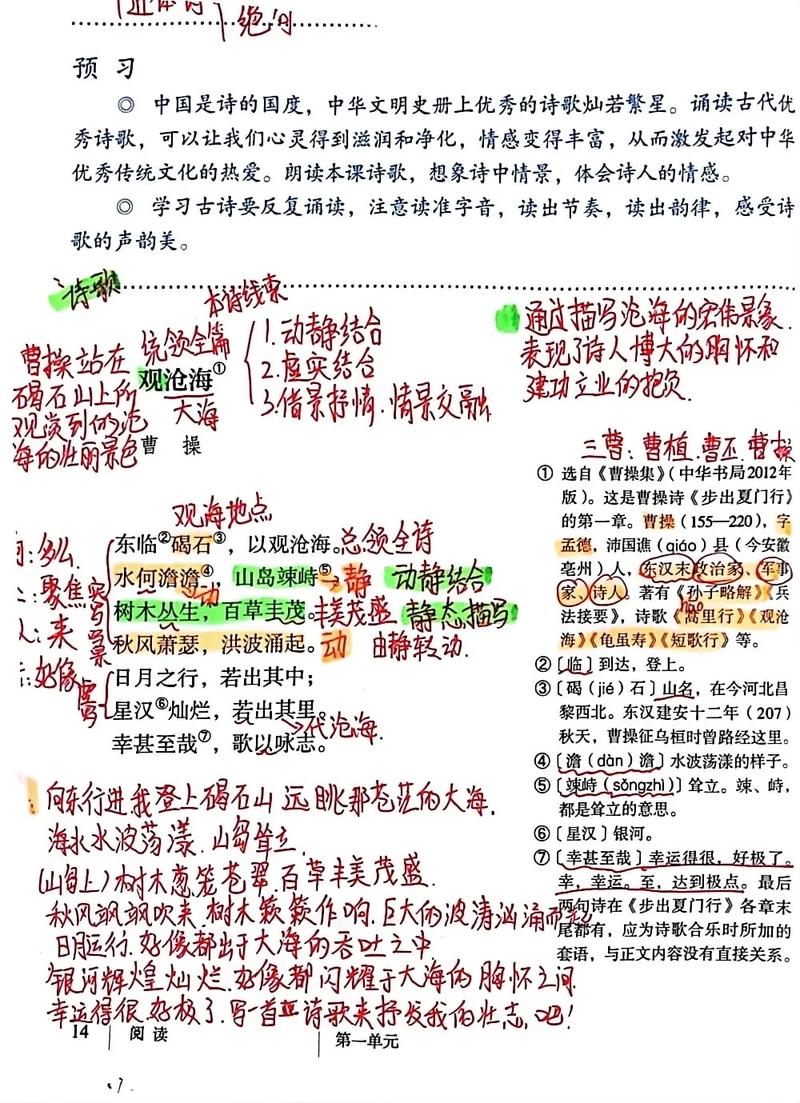 近体诗
绝句
预 习
◎ 中国是诗的国度，中华文明史册上优秀的诗歌灿若繁星。诵读古代优
秀诗歌，可以让我们心灵得到滋润和净化，情感变得丰富，从而激发起对中华
优秀传统文化的热爱。朗读本课诗歌，想象诗中情景，体会诗人的情感。
◎ 学习古诗要反复诵读，注意读准字音，读出节奏，读出韵律，感受诗
歌的声韵美。
诗歌
本诗线索
统领全篇
观沧海①
大海
曹 操
曹操站在
碣石山上所
观赏到的沧
海的壮丽景色
1.动静结合
2.虚实结合
3.借景抒情.情景交融
通过描写沧海的宏伟景象.
表现了诗人博大的胸怀和
建功立业的抱负.
三曹:曹植.曹丕.曹操
观海地点
东临②碣石③，以观沧海。总领全诗
水何澹澹④，山岛竦峙⑤。静 动静结合
动
树木丛生，百草丰茂。丰美茂盛 静态描写
秋风萧瑟，洪波涌起。动 由静转动.
日月之行，若出其中；
星汉⑥灿烂，若出其里。
代沧海.
幸甚至哉⑦，歌以咏志。
:多么
:聚焦
:来
:好像
实写写景
虚写
向东行进我登上碣石山 远眺那苍茫的大海.
海水水波荡漾.山岛耸立.
(山岛上)树木葱笼苍翠.百草丰美茂盛.
秋风飒飒吹来.树木簌簌作响.巨大的波涛汹涌而起
日月运行.好像都出于大海的吞吐之中
银河辉煌灿烂.好像都闪耀于大海的胸怀之间.
幸运得很.好极了.写一首诗歌来抒发我的壮志.吧!
① 选自《曹操集》（中华书局2012年
版）。这是曹操诗《步出夏门行》
的第一章。曹操（155—220），字
孟德，沛国谯（qiáo）县（今安徽
亳州）人，东汉末政治家、军事
家、诗人。著有《孙子略解》《兵
hāo
法接要》，诗歌《蒿里行》《观沧
海》《龟虽寿》《短歌行》等。
②〔临〕到达，登上。
③〔碣（jié）石〕山名，在今河北昌
黎西北。东汉建安十二年（207）
秋天，曹操征乌桓时曾路经这里。
④〔澹（dàn）澹〕水波荡漾的样子。
⑤〔竦峙（sǒngzhì）〕耸立。竦、峙，
都是耸立的意思。
⑥〔星汉〕银河。
⑦〔幸甚至哉〕幸运得很，好极了。
幸，幸运。至，达到极点。最后
两句诗在《步出夏门行》各章末
尾都有，应为诗歌合乐时所加的
套语，与正文内容没有直接关系。
14 阅 读
第一单元